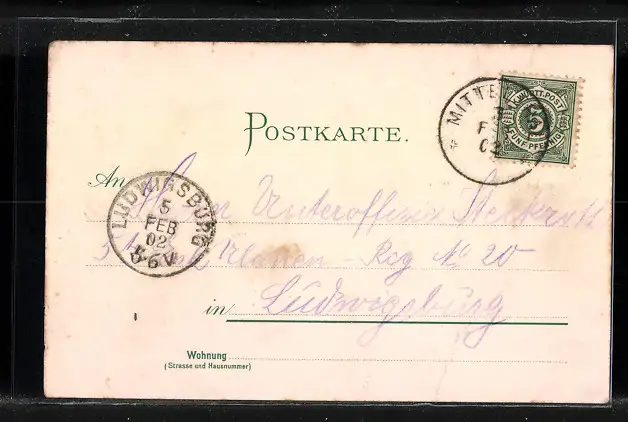 POSTKARTE.
K. WÜRTT. POST
5
FÜNF PFENNIG
MITTE
FE
02
An Herrn Unteroffizier
LUDWIGSBURG
5
FEB
02
5-6V
Ulanen-Reg No 20
in Ludwigsburg
Wohnung
(Strasse und Hausnummer)